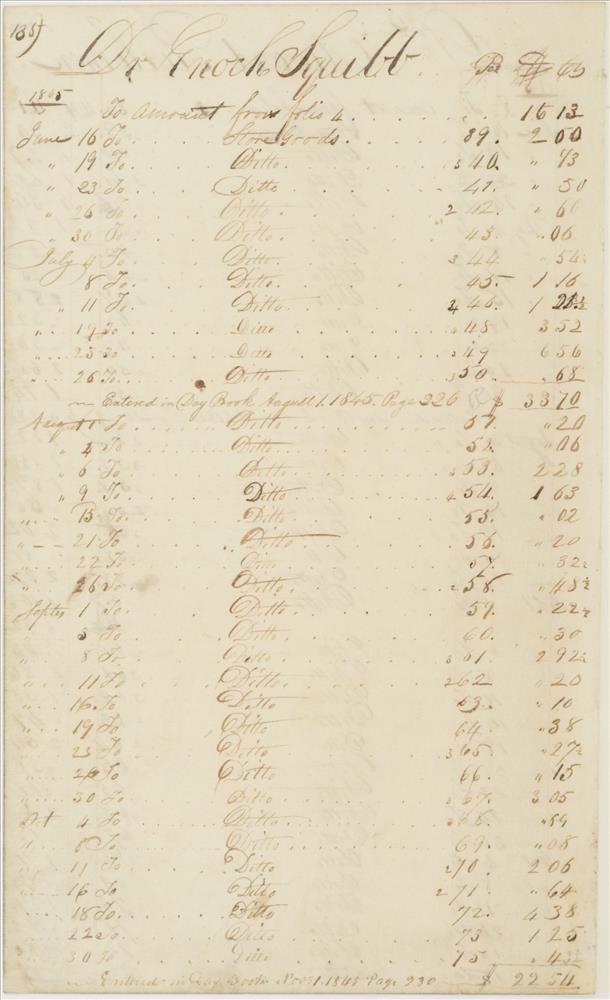 Dr Enoch Squibb. Pa $ Cts
To Amount from folio 4 . . . . 16 13
June 16 To Store Goods . . . 39. 2 00
" 19 To Ditto . . . 40. " 73
" 23 To Ditto . . . 41. " 50
" 26 To Ditto . . . 2 42. " 60
" 30 To Ditto . . . 43. " 06
July 4 To Ditto . . . 3 44 " 54
8 To Ditto . . . 45. 1 16
" 11 To Ditto . . . 2 46. 1
" 19 To Ditto . . . 48 3 52
" 25 To Ditto . . . 49 6 56
" 26 To Ditto . . . 50. " 68
Entered in Day Book August 1. 1845. Page 226 $ 33 70
August To Ditto . . . 51. " 20
" 4 To Ditto . . . 52. " 06
" 6 To Ditto . . . 53. 2 28
" 9 To Ditto . . . 54. 1 63
" 13 To Ditto . . . 55. " 02
" 21 To Ditto . . . 56. " 20
" 22 To Ditto . . . 57. " 32
" 26 To Ditto . . . 58. " 48½
Septer 1 To Ditto . . . 59. " 22½
3 To Ditto . . . 60. " 30
" 8 To Ditto . . . 61. 2 92½
" 11 To Ditto . . . 2 62 " 20
" 16 To Ditto . . . 63. " 10
" 19 To Ditto . . . 64. " 38
" 23 To Ditto . . . 3 65. " 27½
" 26 To Ditto . . . 66. " 15
" 30 To Ditto . . . 67. 3 05
Oct 4 To Ditto . . . 68.
" 8 To Ditto . . . 69. " 08
" 11 To Ditto . . . 2 70. 2 06
" 16 To Ditto . . . 2 71 " 64
" 18 To Ditto . . . 72. 4 38
" 22 To Ditto . . . 73 1 25
" 30 To Ditto . . . 75 " 43
Entered in Day Book Nov 1. 1845 Page 230 $ 22 54